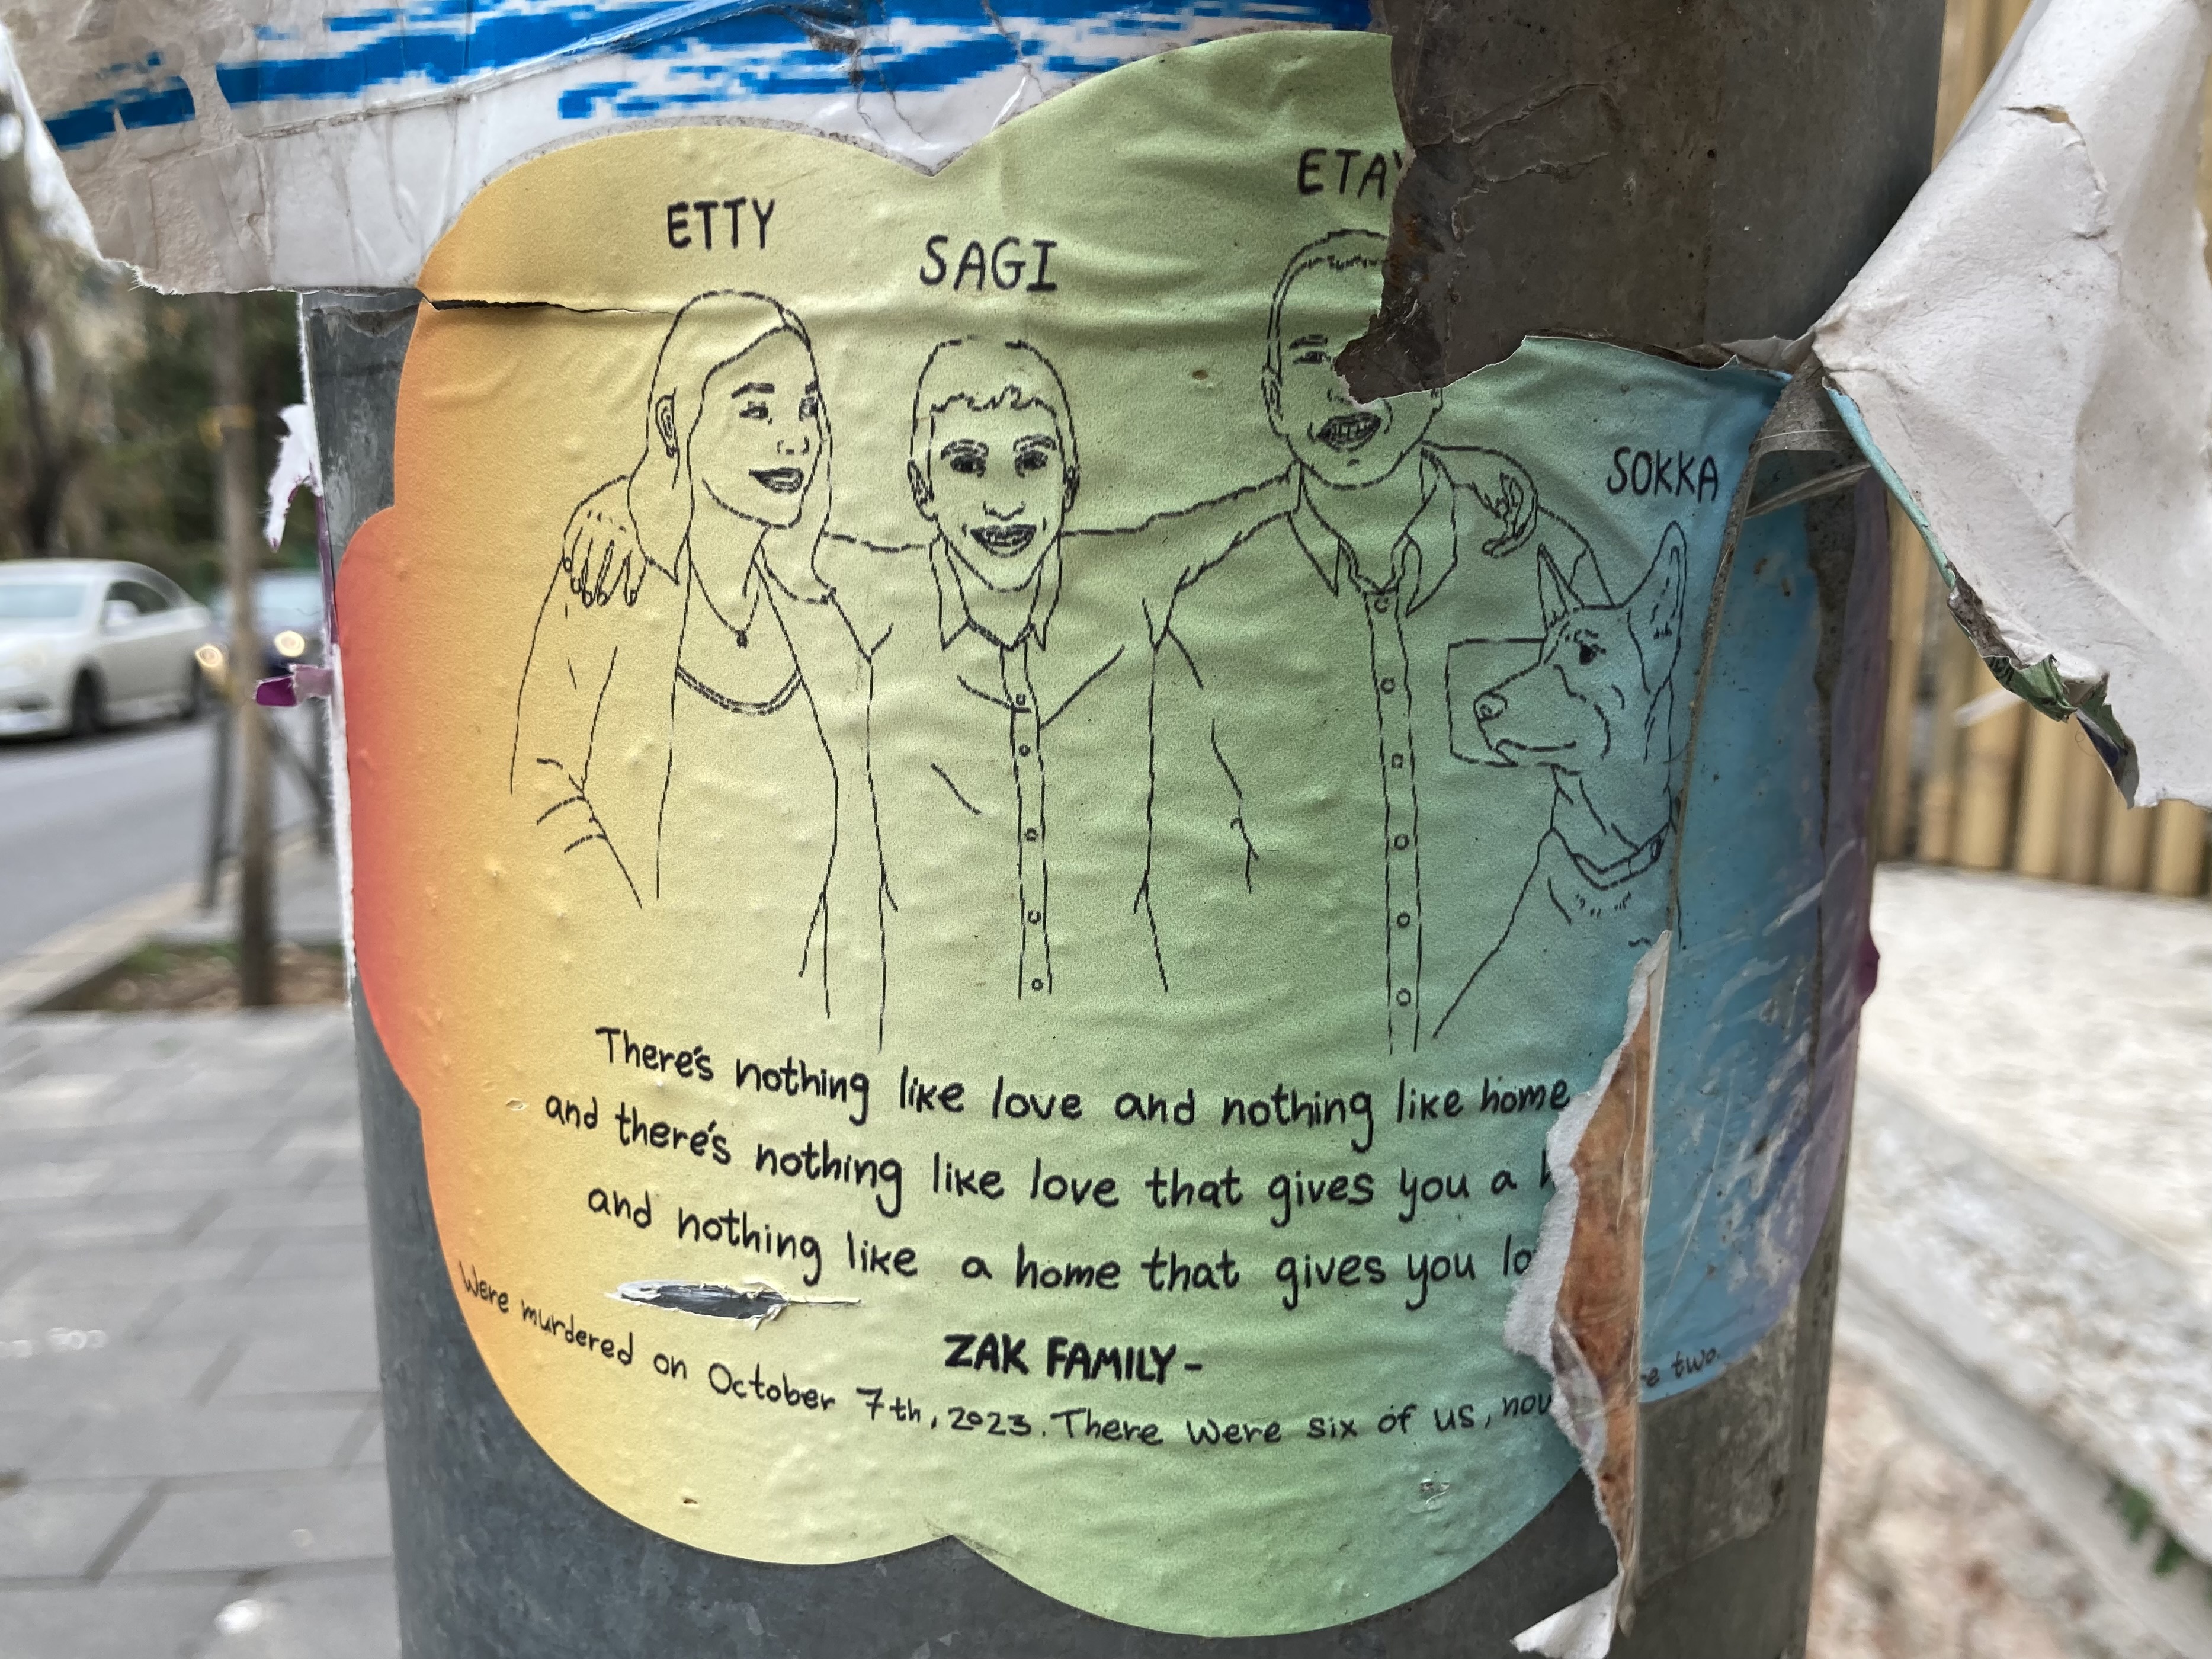 ETTY
SAGI
SOKKA
There's nothing like love and nothing like home
and there's nothing like love that gives you a
and nothing like a home that gives you
ZAK FAMILY -
Were murdered on October 7th, 2023. There were six of us, two.